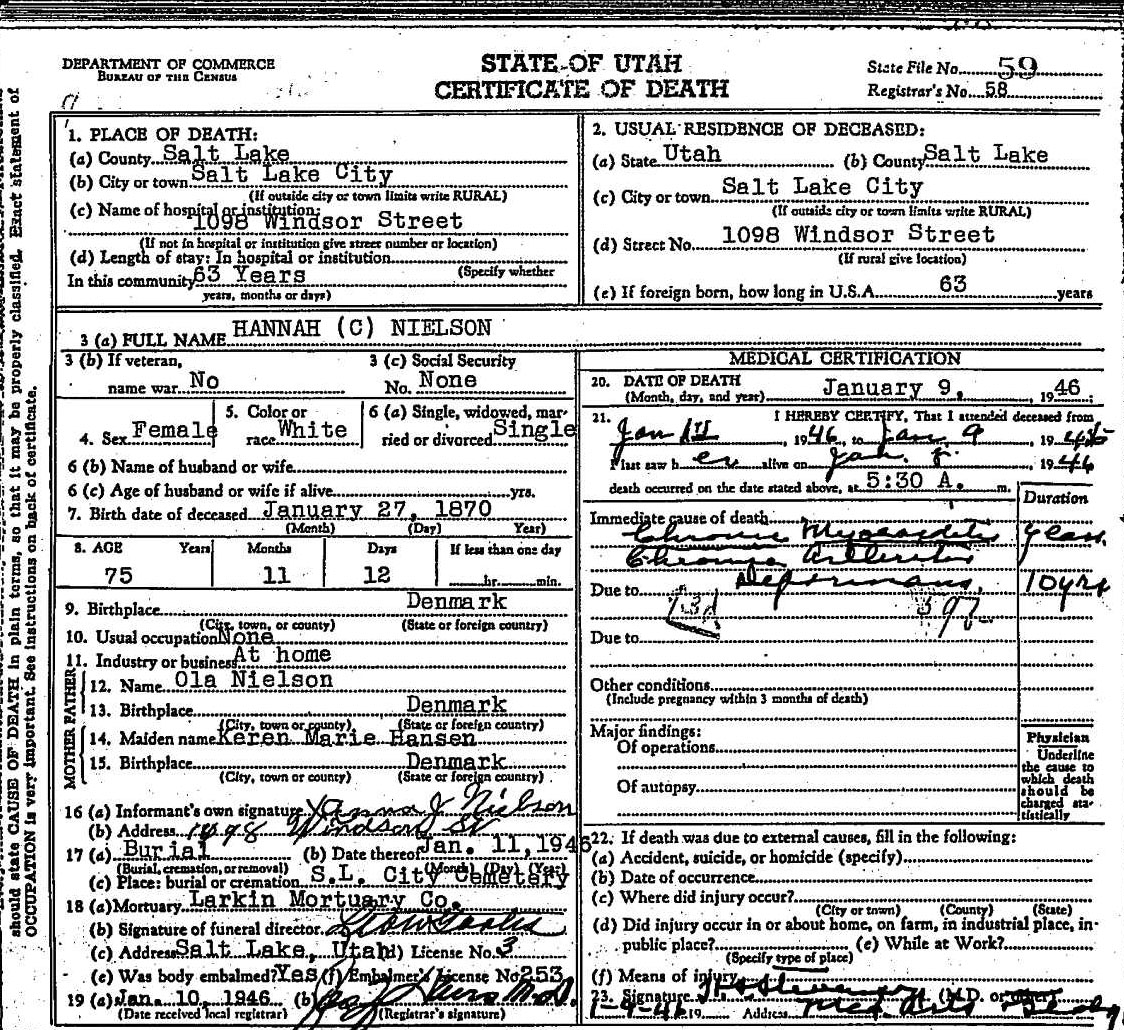 DEPARTMENT OF COMMERCE
BUREAU OF THE CENSUS
STATE OF UTAH
CERTIFICATE OF DEATH
State File No. 59
Registrar's No. 58
should state CAUSE OF DEATH in plain terms, so that it may be properly classified. Exact statement of
OCCUPATION is very important. See instructions on back of certificate.
1. PLACE OF DEATH:
(a) County Salt Lake
(b) City or town Salt Lake City
(If outside city or town limits write RURAL)
(c) Name of hospital or institution:
1098 Windsor Street
(If not in hospital or institution give street number or location)
(d) Length of stay: In hospital or institution
(Specify whether
In this community 63 Years
years, months or days)
2. USUAL RESIDENCE OF DECEASED:
(a) State Utah (b) County Salt Lake
(c) City or town Salt Lake City
(If outside city or town limits write RURAL)
(d) Street No. 1098 Windsor Street
(If rural give location)
(e) If foreign born, how long in U.S.A. 63 years
3 (a) FULL NAME HANNAH (C) NIELSON
3 (b) If veteran,
name war No
3 (c) Social Security
No. None
4. Sex Female
5. Color or
race White
6 (a) Single, widowed, mar-
ried or divorced Single
6 (b) Name of husband or wife
6 (c) Age of husband or wife if alive yrs.
7. Birth date of deceased January 27, 1870
(Month) (Day) Year)
8. AGE Years Months Days If less than one day
75 11 12 hr. min.
9. Birthplace Denmark
(City, town, or county) (State or foreign country)
10. Usual occupation None
11. Industry or business At home
FATHER
12. Name Ola Nielson
13. Birthplace Denmark
(City, town or county) (State or foreign country)
MOTHER
14. Maiden name Keren Marie Hansen
15. Birthplace Denmark
(City, town or county) (State or foreign country)
16 (a) Informant's own signature Anna J Nielson
(b) Address 1098 Windsor St
17 (a) Burial (b) Date thereof Jan. 11, 1946
(Burial, cremation, or removal) (Month) (Day) (Year)
(c) Place: burial or cremation S.L. City Cemetery
18 (a) Mortuary Larkin Mortuary Co.
(b) Signature of funeral director
(c) Address Salt Lake, Utah (d) License No. 3
(e) Was body embalmed? Yes (f) Embalmer's License No 253
19 (a) Jan. 10, 1946 (b) M.D.
(Date received local registrar) (Registrar's signature)
MEDICAL CERTIFICATION
20. DATE OF DEATH
(Month, day, and year) January 9, 1946
21. I HEREBY CERTIFY, That I attended deceased from
Jan , 1946, to Jan. 9, 1946
I last saw her alive on Jan. , 1946
death occurred on the date stated above, at 5:30 A. m.
Duration
Immediate cause of death
Chronic Myocarditis years
Chronic Arthritis
Due to Deformans, 10 yrs
Due to
Other conditions
(Include pregnancy within 3 months of death)
Major findings:
Of operations
Of autopsy
Physician
Underline
the cause to
which death
should be
charged sta-
tistically
22. If death was due to external causes, fill in the following:
(a) Accident, suicide, or homicide (specify)
(b) Date of occurrence
(c) Where did injury occur?
(City or town) (County) (State)
(d) Did injury occur in or about home, on farm, in industrial place, in
public place? (e) While at Work?
(Specify type of place)
(f) Means of injury
23. Signature (M.D. or other)
1-9-46 19 Address Med. Arts Bldg